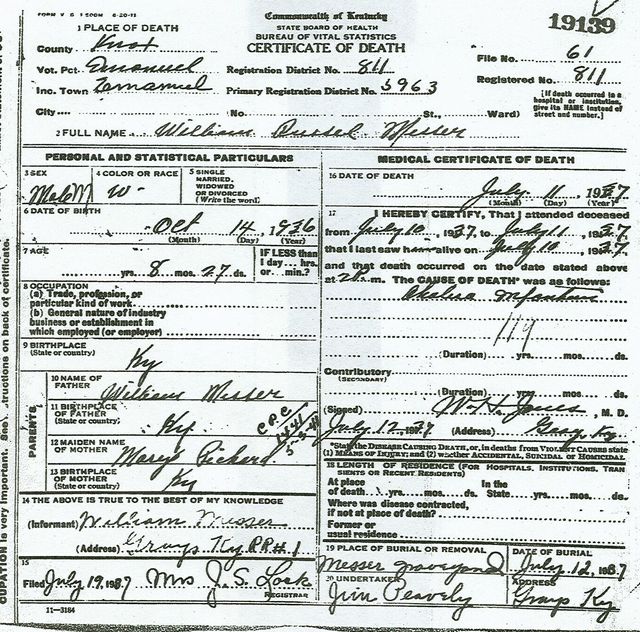 FORM V S 1 500M 6-20-11
Commonwealth of Kentucky
STATE BOARD OF HEALTH
BUREAU OF VITAL STATISTICS
CERTIFICATE OF DEATH
19139
1 PLACE OF DEATH
County Knox
Vot. Pct. Emanuel Registration District No. 811
Inc. Town Emanuel Primary Registration District No. 5963
City No. St., Ward)
File No. 61
Registered No. 811
[If death occurred in a hospital or institution, give its NAME instead of street and number.]
2 FULL NAME William Russel Messer
PERSONAL AND STATISTICAL PARTICULARS
3 SEX Male M
4 COLOR OR RACE W
5 SINGLE, MARRIED, WIDOWED OR DIVORCED (Write the word)
6 DATE OF BIRTH
Oct 14 1936
(Month) (Day) (Year)
7 AGE
yrs. 8 mos. 27 ds.
IF LESS than 1 day... hrs. or... min.?
8 OCCUPATION
(a) Trade, profession, or particular kind of work
(b) General nature of industry business or establishment in which employed (or employer)
9 BIRTHPLACE
(State or country) Ky
PARENTS
10 NAME OF FATHER William Messer
11 BIRTHPLACE OF FATHER (State or country) Ky
12 MAIDEN NAME OF MOTHER
13 BIRTHPLACE OF MOTHER (State or country) Ky
14 THE ABOVE IS TRUE TO THE BEST OF MY KNOWLEDGE
(Informant) William Messer
(Address) Grays Ky RR #1
15
Filed July 19, 1937 Mrs J. S. Lock
REGISTRAR
11-3184
MEDICAL CERTIFICATE OF DEATH
16 DATE OF DEATH
July 11 1937
(Month) (Day) (Year)
17 I HEREBY CERTIFY, That I attended deceased
from July 10, 1937, to July 11, 1937,
that I last saw him alive on July 10, 1937,
and that death occurred on the date stated above
at 2 m. The CAUSE OF DEATH* was as follows:
119
(Duration) yrs. mos. ds.
Contributory
(SECONDARY)
(Duration) yrs. mos. ds.
(Signed) W. H. Jones, M. D.
July 12 1937 (Address) Gray, Ky
*State the DISEASE CAUSING DEATH, or, in deaths from VIOLENT CAUSES state (1) MEANS OF INJURY; and (2) whether ACCIDENTAL, SUICIDAL or HOMICIDAL.
18 LENGTH OF RESIDENCE (FOR HOSPITALS, INSTITUTIONS, TRANSIENTS OR RECENT RESIDENTS)
At place of death yrs. mos. ds. In the State yrs. mos. ds.
Where was disease contracted, if not at place of death?
Former or usual residence
19 PLACE OF BURIAL OR REMOVAL Messer graveyard
DATE OF BURIAL July 12, 1937
20 UNDERTAKER Jim Peavely
ADDRESS Grays Ky
CUPATION is very important. See instructions on back of certificate.